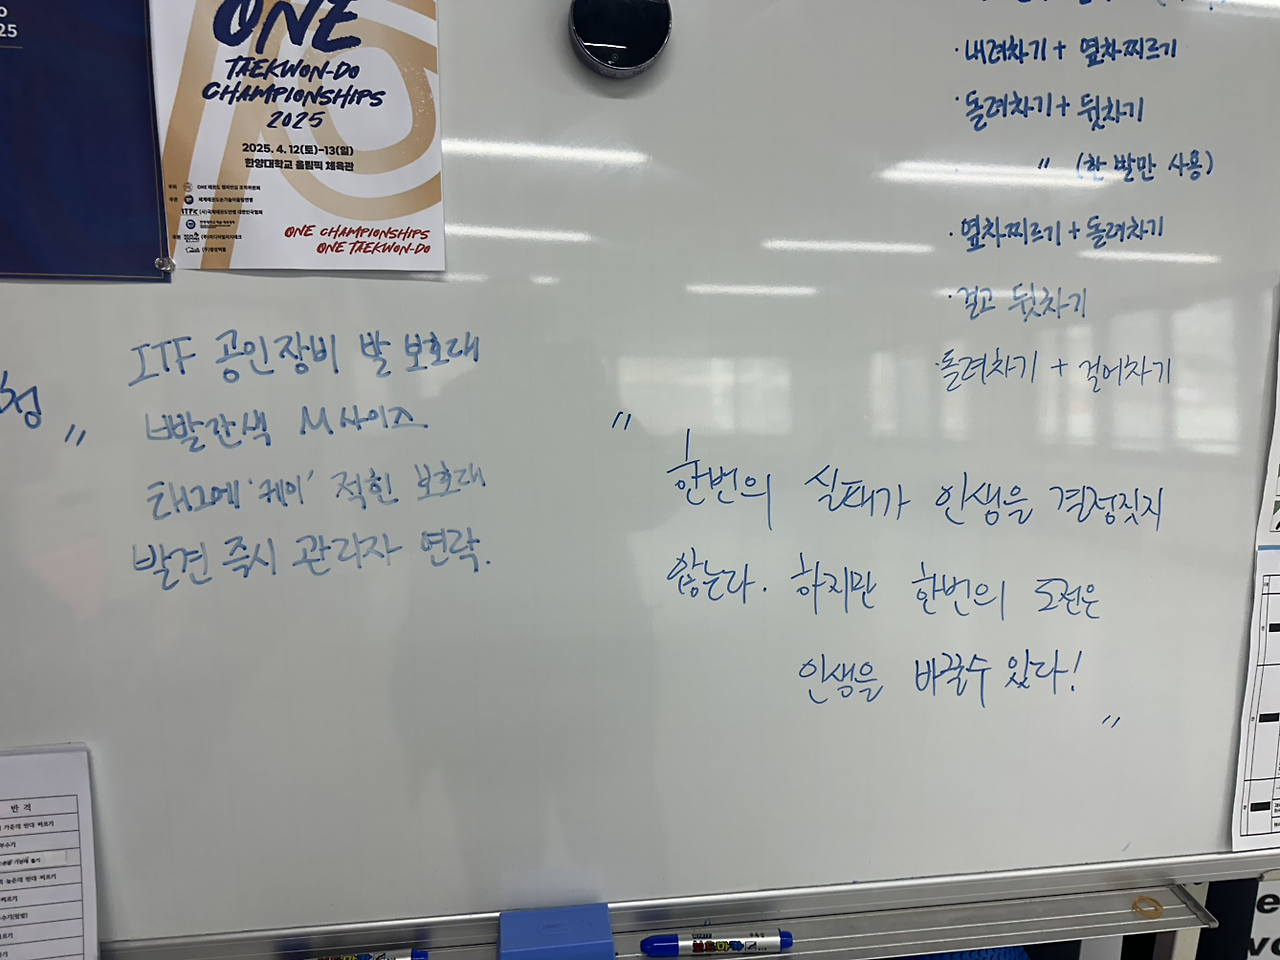 25
ONE
TAEKWON-DO
CHAMPIONSHIPS
2025
2025. 4. 12(토)-13(일)
한양대학교 올림픽 체육관
ONE CHAMPIONSHIPS
ONE TAEKWON-DO
· 내려차기 + 옆차찌르기
· 돌려차기 + 뒷차기
〃 (한 발만 사용)
· 옆차찌르기 + 돌려차기
· 걸고 뒷차기
· 돌려차기 + 걸어차기
청
〃
ITF 공인장비 발 보호대
빨간색 M 사이즈
태그에 '케이' 적힌 보호대
발견 즉시 관리자 연락.
"
한번의 실패가 인생을 결정짓지
않는다. 하지만 한번의 도전은
인생을 바꿀수 있다!
"
반격
보드마카